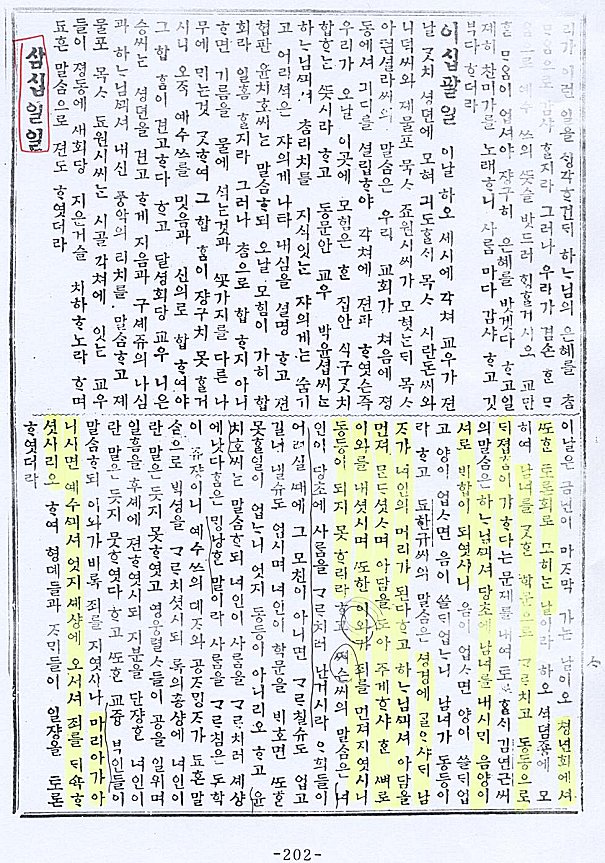 리가 이런 일을 싱각ᄒᆞ건ᄃᆡ 하ᄂᆞ님의 은혜를 츔
ᄆᆞ음으로 감샤 ᄒᆞᆯ지라 그러나 우리가 겸손 ᄒᆞᆫ ᄆᆞ
음으로 예수 쓰의 ᄯᅳᆺ을 밧드러 ᄒᆡᆼᄒᆞᆯ거시오 교만
ᄒᆞᆯ ᄆᆞ음이 업셔야 쟝구히 은혜를 밧겟다 ᄒᆞ고 일
제히 찬미가를 노래ᄒᆞ니 사ᄅᆞᆷ마다 감샤 ᄒᆞ고 깃
부다 ᄒᆞ더라
이십팔일 이날 하오 세시에 각쳐 교우가 젼
날 ᄀᆞᆺ치 셩면에 모혀 긔도ᄒᆞᆯᄉᆡ 목ᄉᆞ 시란돈씨와
니덕씨와 제물포 목ᄉᆞ 죠원시씨가 모혓ᄂᆞᆫᄃᆡ 목ᄉᆞ
아편셜라씨의 말ᄉᆞᆷ은 우리 교회가 처음에 졍
동에셔 긔디를 셜립ᄒᆞ야 각쳐에 젼파 ᄒᆞ엿슨즉
우리가 오날 이곳에 모힘은 ᄒᆞᆫ 집안 식구 ᄀᆞᆺ치
합ᄒᆞᄂᆞᆫ ᄯᅳᆺ시라 ᄒᆞ고 동문안 교우 박윤셥씨ᄂᆞᆫ
하ᄂᆞ님ᄭᅴ셔 츔리치를 지식잇ᄂᆞᆫ 쟈의게ᄂᆞᆫ 숨기
고 어리셕은 쟈의게 나타내심을 셜명 ᄒᆞ고 젼
협판 윤치호씨ᄂᆞᆫ 말ᄉᆞᆷᄒᆞ되 오날 모힘이 가히 합
회라 일홈 ᄒᆞᆯ지라 그러나 츔으로 합 ᄒᆞ지 아니
ᄒᆞ면 기름을 물에 석ᄂᆞᆫ것과 ᄭᅩᆺ가지를 다른 나
무에 ᄆᆡᄂᆞᆫ것 ᄀᆞᆺᄒᆞ여 그 합ᄒᆞᆷ이 쟝구치 못 ᄒᆞᆯ거
시니 오즉 예수쓰를 밋음과 신의로 합ᄒᆞ여야
그 합ᄒᆞᆷ이 견고ᄒᆞ다 ᄒᆞ고 달셩회당 교우 니은
승씨ᄂᆞᆫ 셩면을 견고ᄒᆞ게 지음과 구셰쥬의 나심
과 하ᄂᆞ님ᄭᅴ셔 내신 풍악의 리치를 말ᄉᆞᆷᄒᆞ고 졔
물포 목ᄉᆞ 됴원시씨ᄂᆞᆫ 시골 각쳐에 잇ᄂᆞᆫ 교우
들이 졍동에 새회당 지은거슬 치하ᄒᆞ노라 ᄒᆞ며
됴흔 말ᄉᆞᆷ으로 젼도 ᄒᆞ엿더라
삼십일일
이날은 금년이 마즈막 가ᄂᆞᆫ 날이오 쳥년회에셔
ᄯᅩᄒᆞᆫ 토론회로 모히ᄂᆞᆫ 날이라 하오 셔뎜죵에 모
히여 남녀를 ᄀᆞᆺᄒᆞᆫ 학문으로 ᄀᆞᄅᆞ치고 동등으로
ᄃᆡ졉ᄒᆞᆷ이 가ᄒᆞ다ᄂᆞᆫ 문제를 내여 토론ᄒᆞᆯᄉᆡ 김연근씨
의 말ᄉᆞᆷ은 하ᄂᆞ님ᄭᅴ셔 당초에 남녀를 내시ᄆᆡ 음양이
셔로 ᄇᆡ합이 되엿시니 음이 업스면 양이 쓸ᄃᆡ업
고 양이 업스면 음이 쓸ᄃᆡ업ᄂᆞ니 남녀가 동등이
라 ᄒᆞ고 됴한규씨의 말ᄉᆞᆷ은 셩경에 ᄀᆞᆯᄋᆞ샤ᄃᆡ 남
ᄌᆞ가 녀인의 머리가 된다 ᄒᆞ고 하ᄂᆞ님ᄭᅴ셔 아담을
먼져 ᄆᆞᆫᄃᆞ셧스며 아담을 도아 주게 ᄒᆞ샤 ᄒᆞᆫ ᄲᅧ로
이와를 내셧시며 ᄯᅩᄒᆞᆫ 이와가 죄를 먼져 지엿시니
동등이 되지 못 ᄒᆞ리라 ᄒᆞ고 ᄶᅦ슨씨의 말ᄉᆞᆷ은 녀
인이 당초에 사ᄅᆞᆷ을 ᄀᆞᄅᆞ치러 난거시라 ᄋᆞ희들이
어려실 ᄯᅢ에 그 모친이 아니면 ᄀᆞᄅᆞ칠슈도 업고
길너 낼슈도 업시며 녀인이 학문을 ᄇᆡ호면 ᄯᅩᄒᆞᆫ
못ᄒᆞᆯ일이 업ᄂᆞ니 엇지 동등이 아니리오 ᄒᆞ고 윤
치호씨ᄂᆞᆫ 말ᄉᆞᆷᄒᆞ되 녀인이 사ᄅᆞᆷ을 ᄀᆞᄅᆞ치러 셰샹
에 낫다 ᄒᆞᆷ은 망녕ᄒᆞᆫ 말이라 사ᄅᆞᆷ을 ᄀᆞᄅᆞ침은 도학
이 읏ᄯᅳᆷ이니 예수쓰의 뎨ᄌᆞ와 공ᄌᆞ ᄆᆡᆼᄌᆞ가 됴흔 말
ᄉᆞᆷ으로 ᄇᆡᆨ셩을 ᄀᆞᄅᆞ치셧시되
란 말은 듯지 못ᄒᆞ엿고 영웅렬ᄉᆞ들이 공을 일위며
일홈을 후셰에 젼ᄒᆞ엿시되
란 말은 듯지 못ᄒᆞ엿다 ᄒᆞ고 ᄯᅩᄒᆞᆫ 교즁 부인들이
말ᄉᆞᆷᄒᆞ되 이와가 비록 죄를 지엿시나 마리아가 아
니시면 예수ᄭᅴ셔 엇지 셰샹에 오셔셔 죄를 ᄃᆡ쇽ᄒᆞ
셧시리오 ᄒᆞ여 형뎨들과 ᄌᆞᄆᆡ들이 일쟝을 토론
ᄒᆞ엿더라
-202-